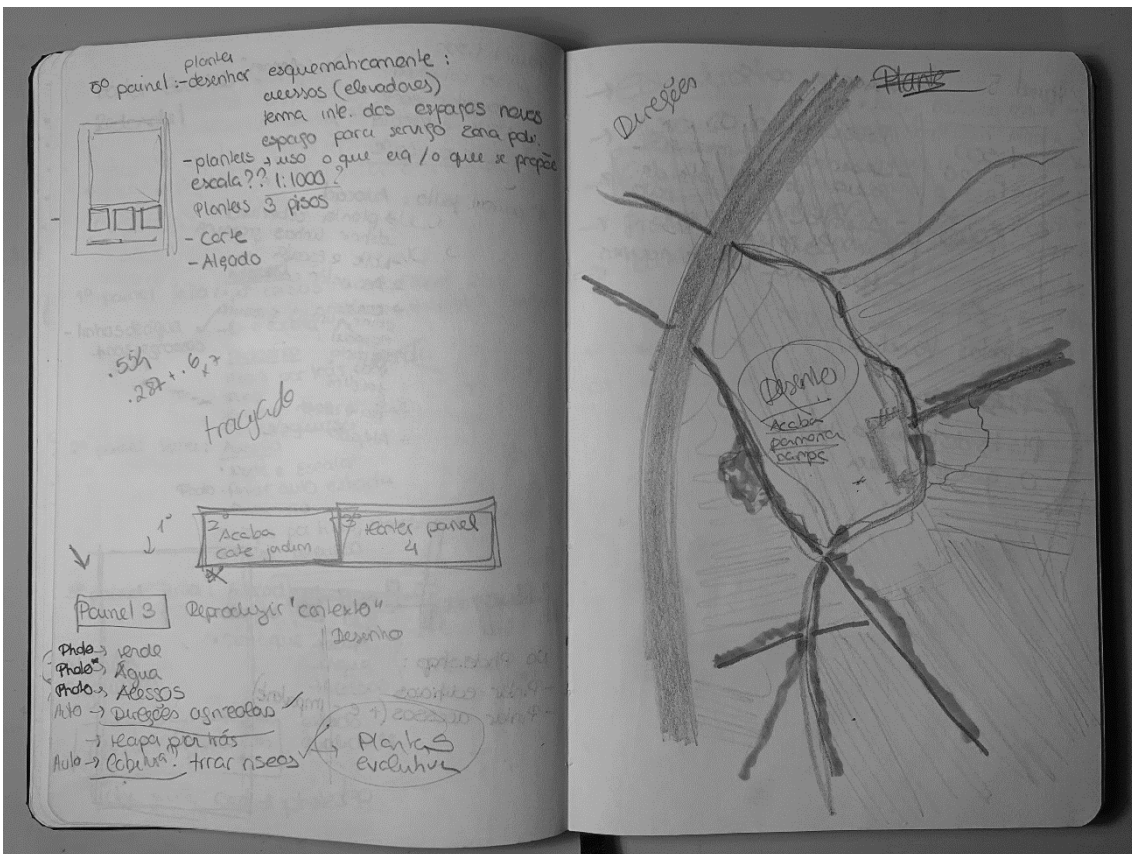 planta
5º painel : - desenhar esquematicamente :
acessos (elevadores)
tema inte. dos espaços novos
espaço para serviço zona poliv.
- plantas → uso o que era / o que se propõe
escala?? 1:1000 ?
Plantas 3 pisos
- Corte
- Alçado
.554
.287 + . 6 x 7
traçado
1º
2º
Acaba
corte jardim
3º
painel
4
Painel 3
Reproduzir "contexto"
Desenho
Photo → verde
Photo → Água
Photo → Acessos
Auto → Direções agrícolas
por trás
Auto → tirar riscos
Plantas
evolutiva
Direções
Planta
Desenho
Acaba
rampa